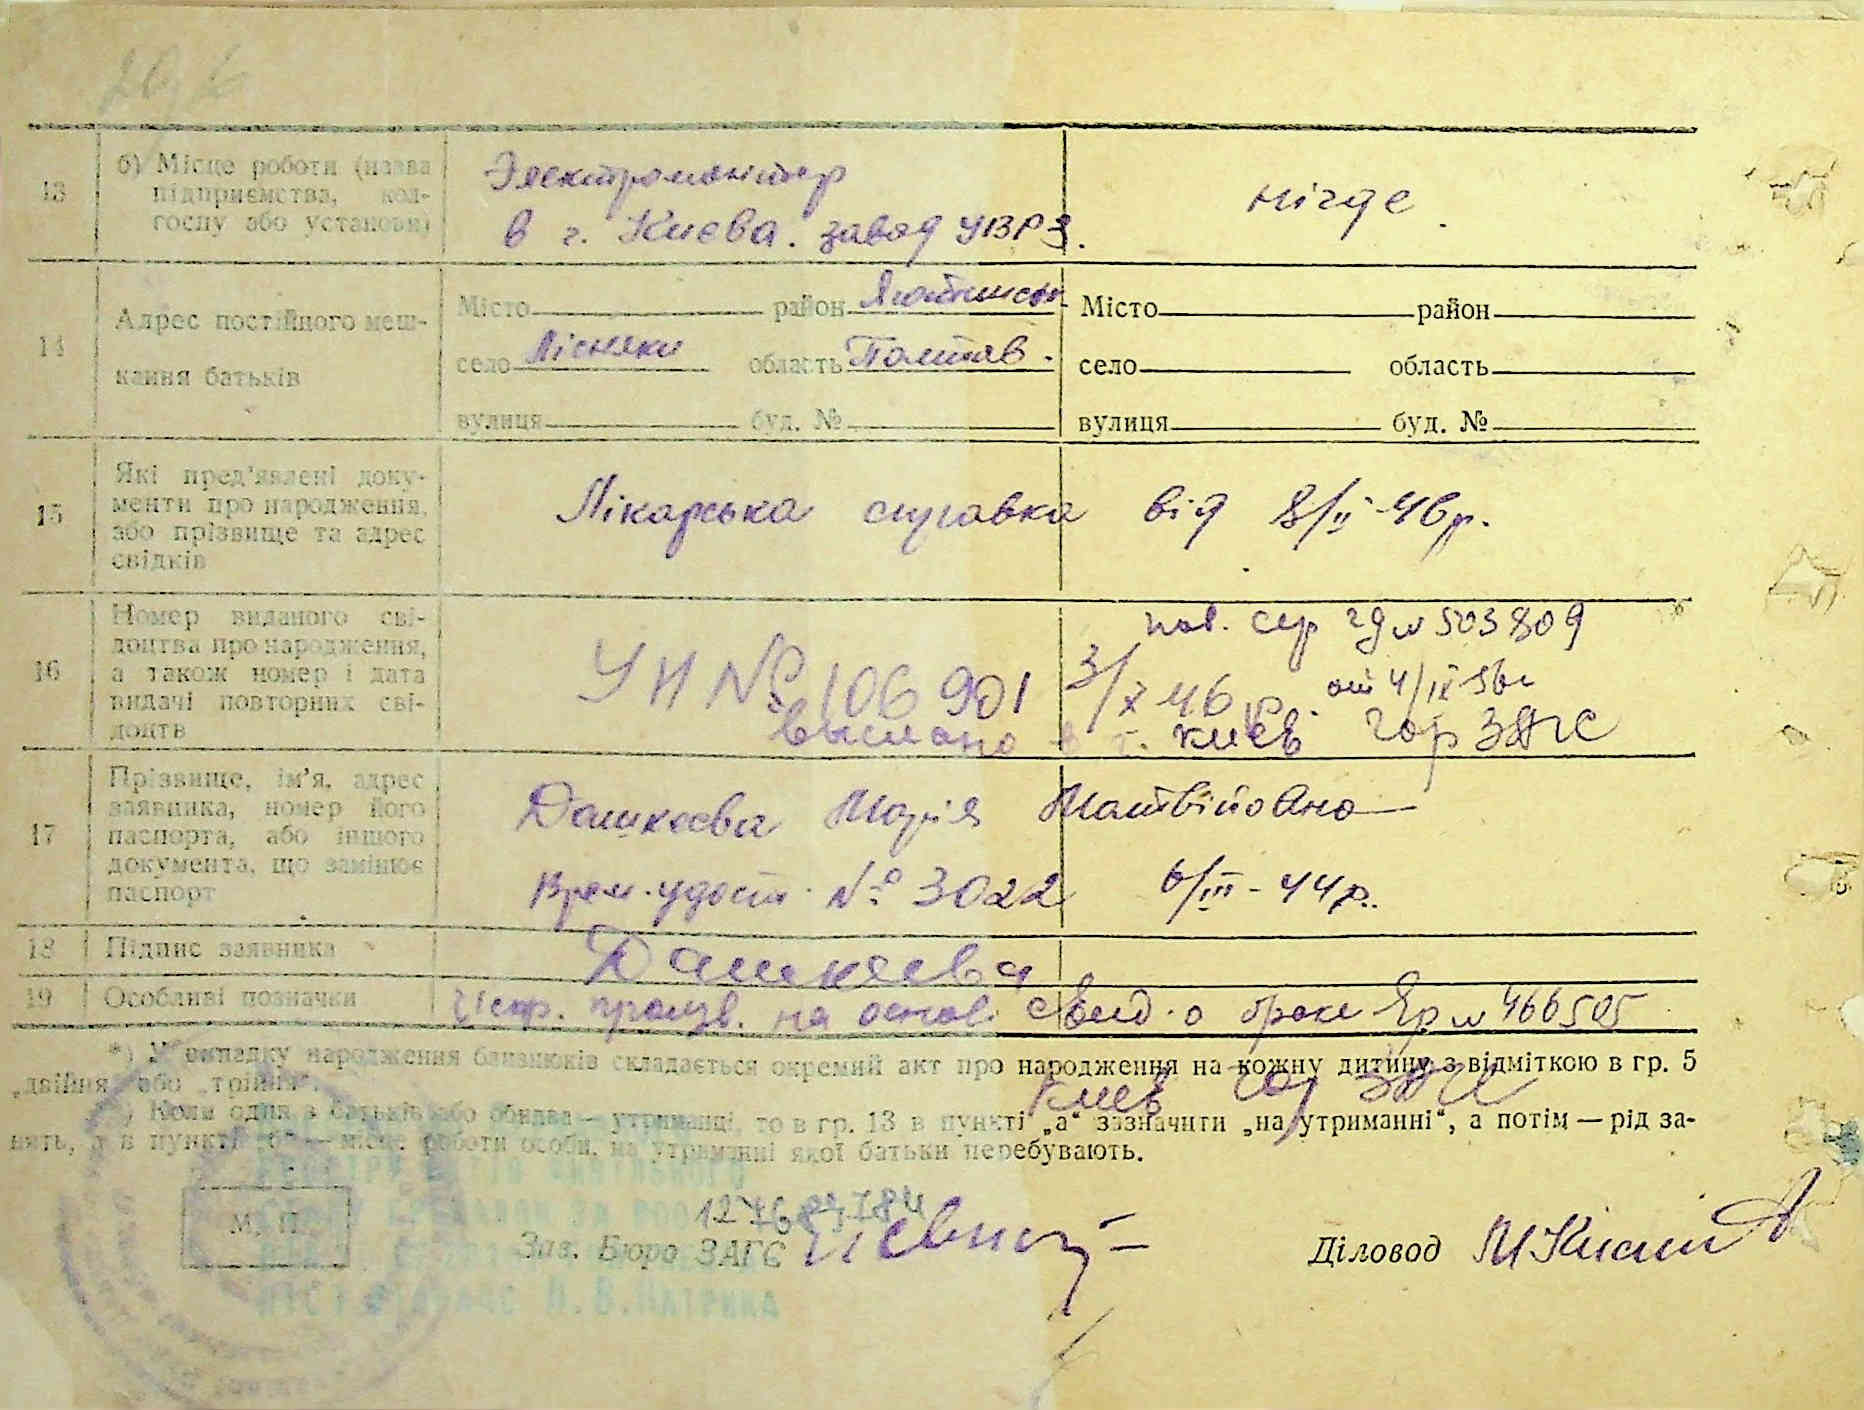 13
б) Місце роботи (назва
підприємства, кол-
госпу або установи)
Электромонтьор
в г. Києва. завод УВРЗ.
нігде
14
Адрес постійного меш-
кання батьків
Місто район Яготинськ
село Лісняки область Полтав.
вулиця буд. №
Місто район
село область
вулиця буд. №
15
Які пред'явлені доку-
менти про народження,
або прізвище та адрес
свідків
Лікарська справка від 8/ІІ-46р.
16
Номер виданого сві-
доцтва про народження,
а також номер і дата
видачі повторних сві-
доцтв
пов. сер ГД № 503809
УН № 106901 3/X 46 р. от 4/IX 56г
выслано в г. Киев Гор ЗАГС
17
Прізвище, ім'я, адрес
заявника, номер його
паспорта, або іншого
документа, що замінює
паспорт
Дашкєєва Марія Матвійовна
Врем. удост. № 3022 6/III-44р.
18
Підпис заявника
Дашкеева
19
Особливі позначки
Испр. произв. на основ. свид. о браке Яр № 466505
Киев Гор ЗАГС
*) У випадку народження близнюків складається окремий акт про народження на кожну дитину з відміткою в гр. 5
„двійня" або „тройня".
Коли один з батьків або обидва — утриманці, то в гр. 13 в пункті „а" зазначити „на утриманні", а потім — рід за-
нять, а в пункті „б" — місце роботи особи, на утриманні якої батьки перебувають.
М. П.
Зав. Бюро ЗАГС
Діловод